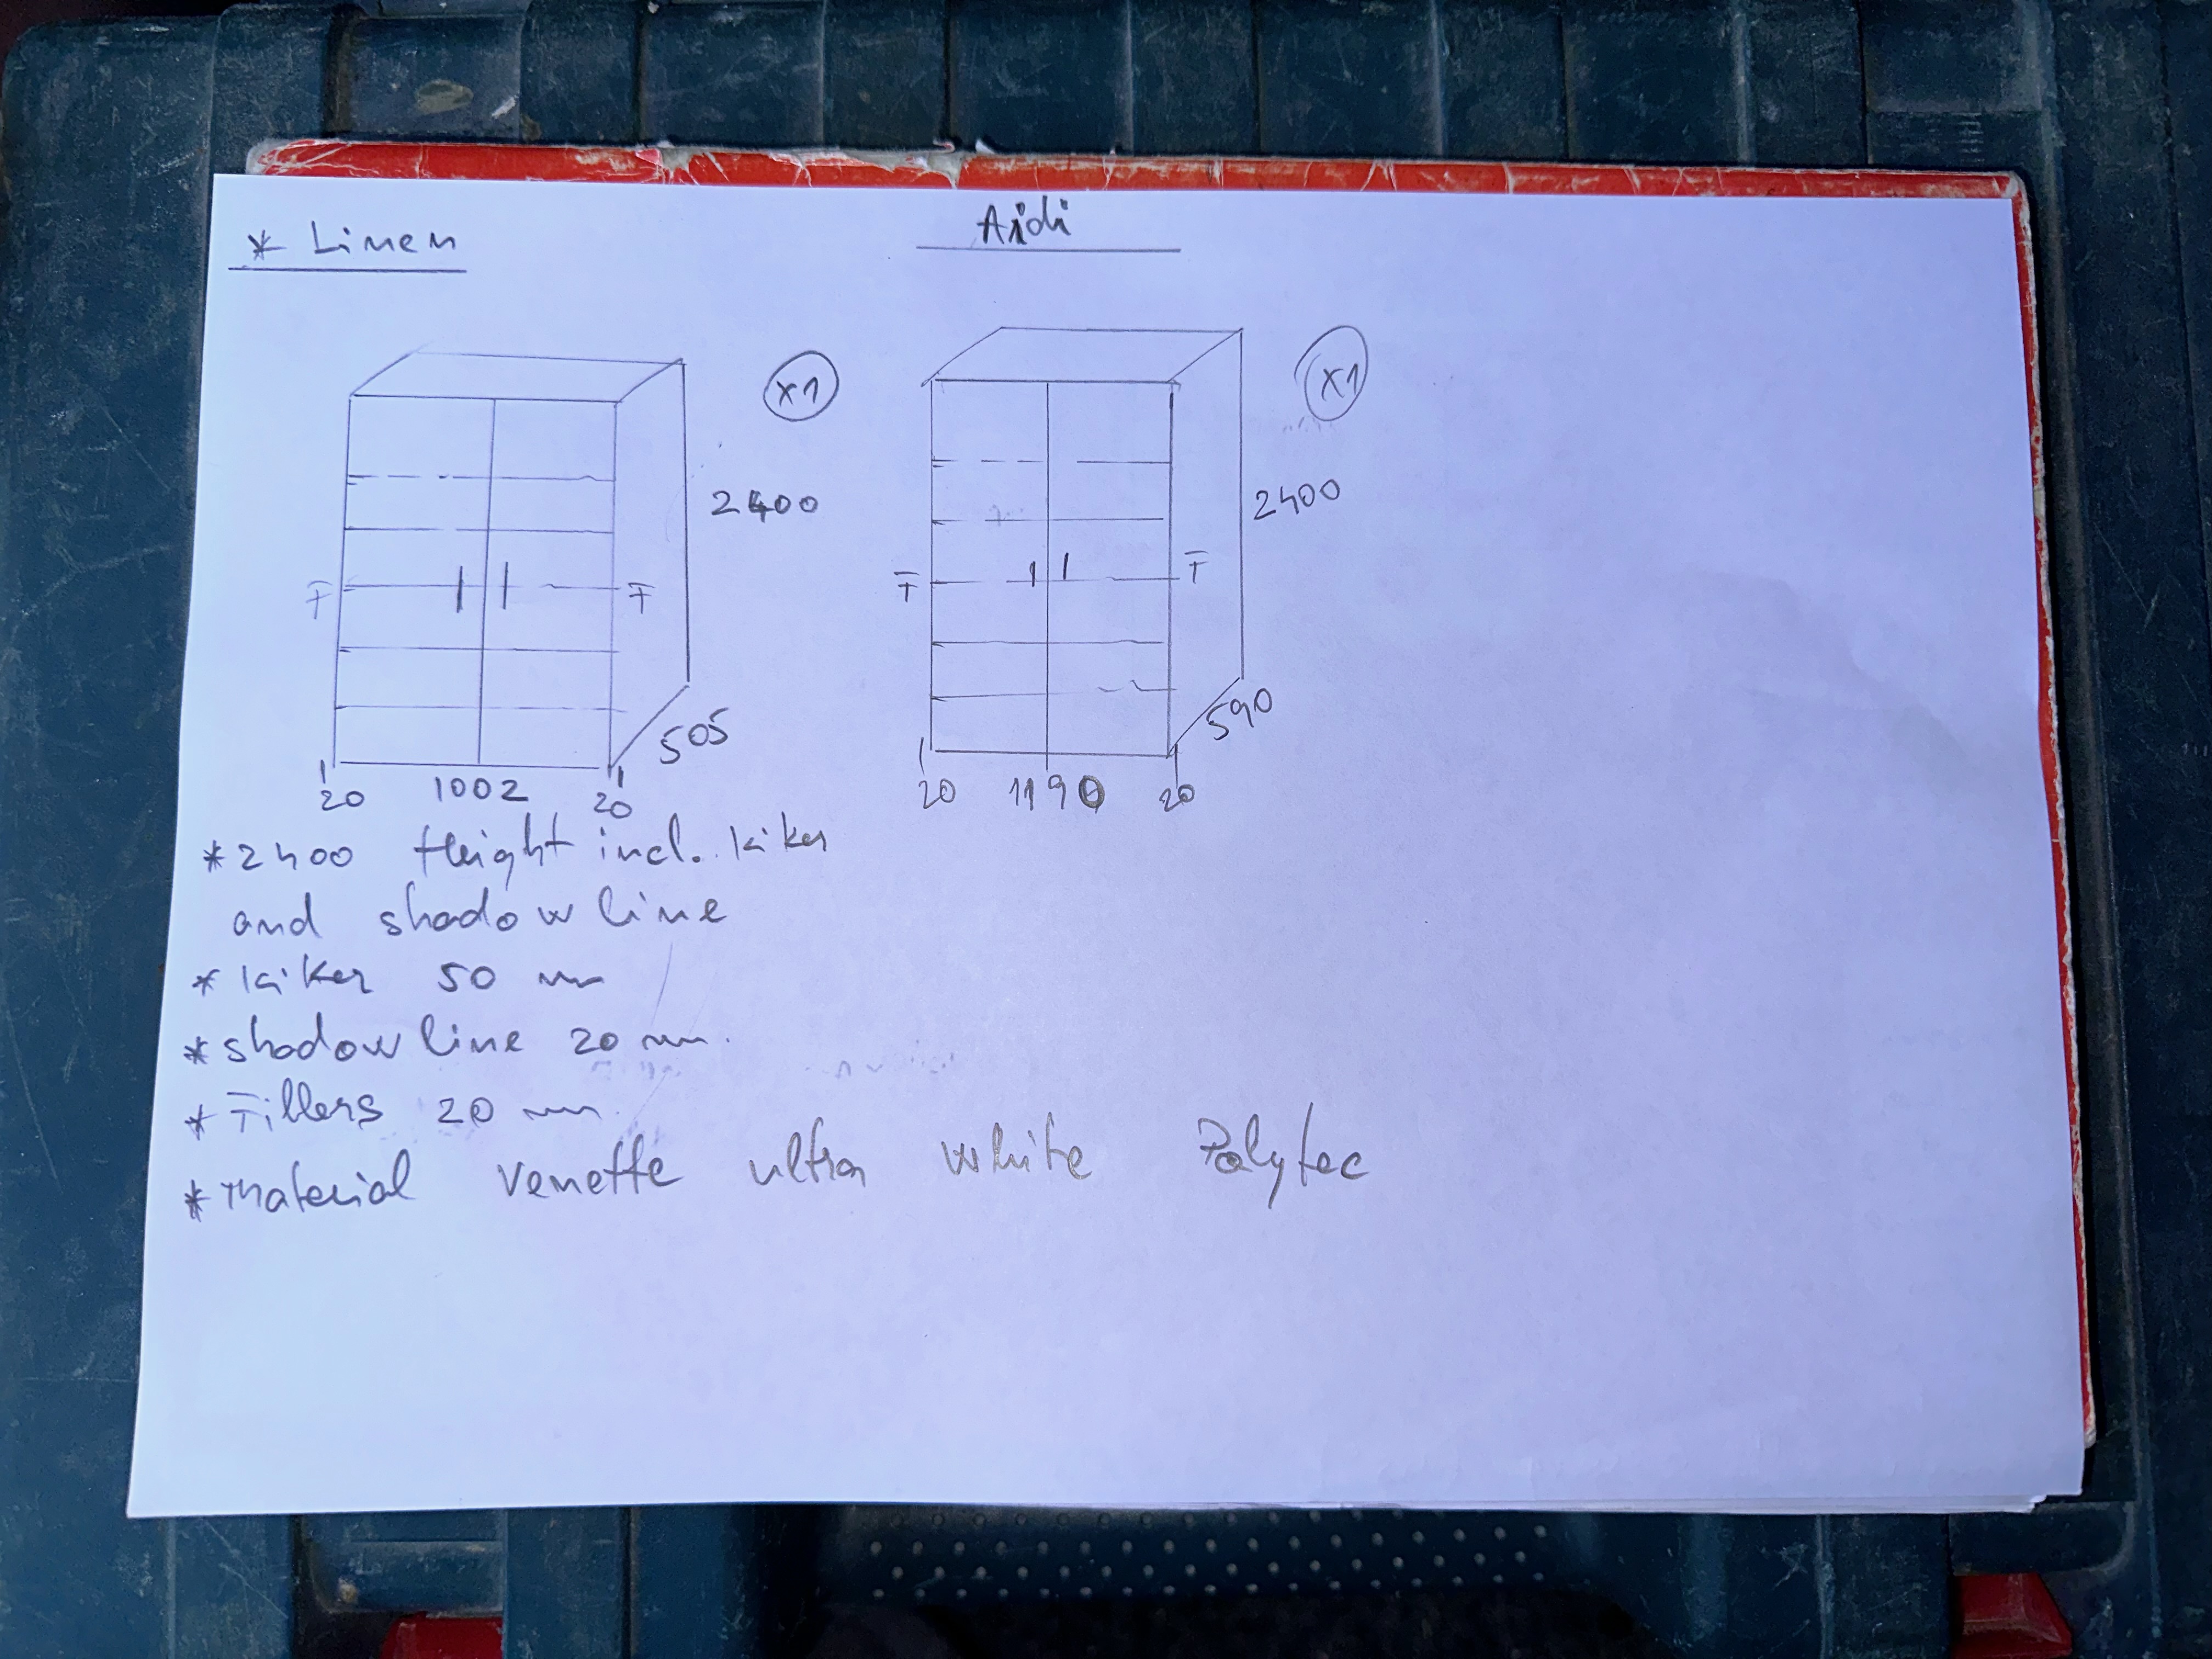 * Linen
Aidi
x1
x1
2400
2400
F
F
F
F
505
590
20
1002
20
20
1190
20
*2400 Height incl. kiker
and shadow line
* kiker 50 mm
* shadow line 20 mm.
* Fillers 20 mm.
* Material venette ultra white Polytec